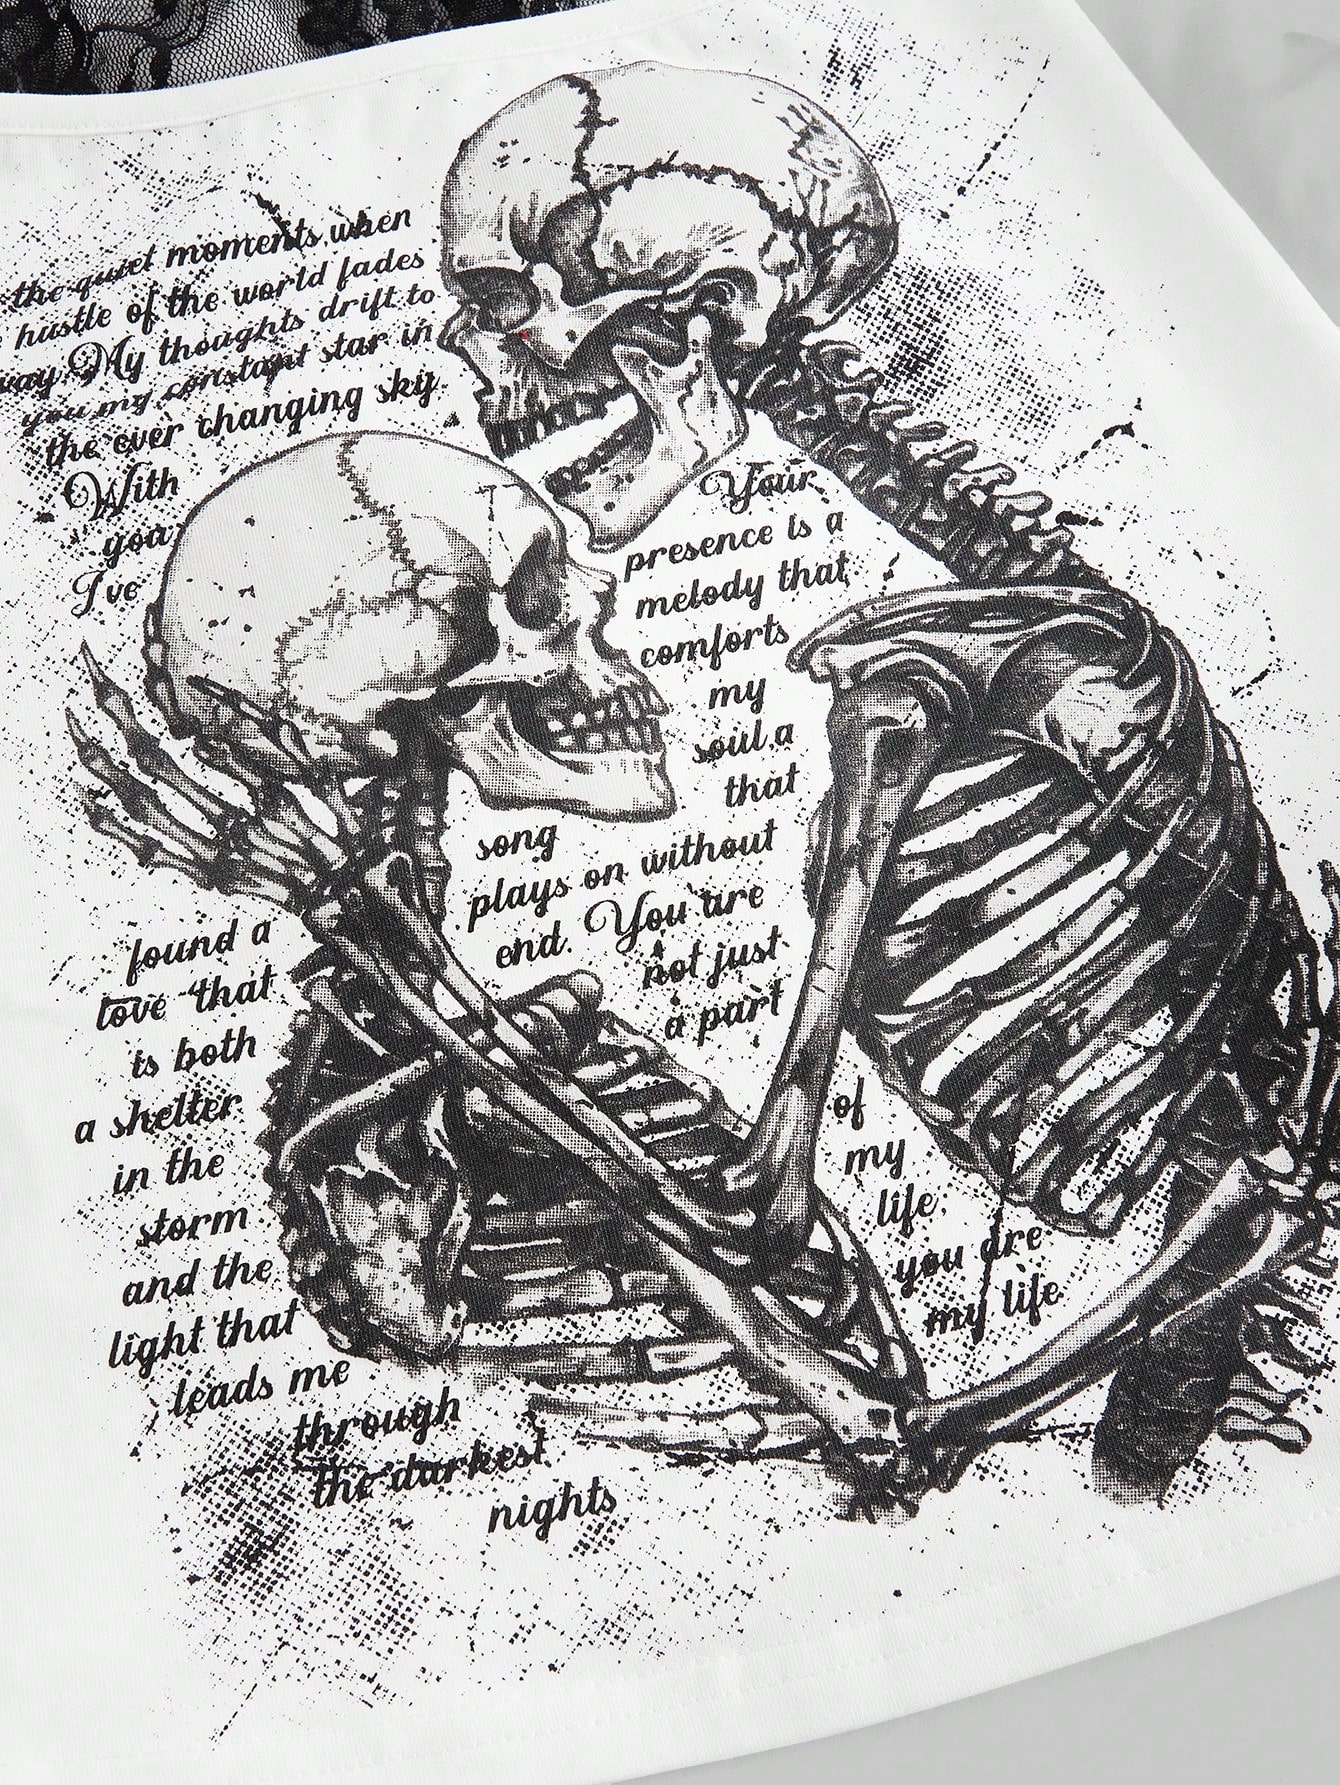 the quiet moments when
hustle of the world fades
My thoughts drift to
you my constant star in
the ever changing sky.
With
you
I've
found a
love that
is both
a shelter
in the
storm
and the
light that
leads me
through
the darkest
nights
Your
presence is a
melody that
comforts
my
soul, a
that
song
plays on without
end. You are
not just
a part
of
my
life,
you are
my life.